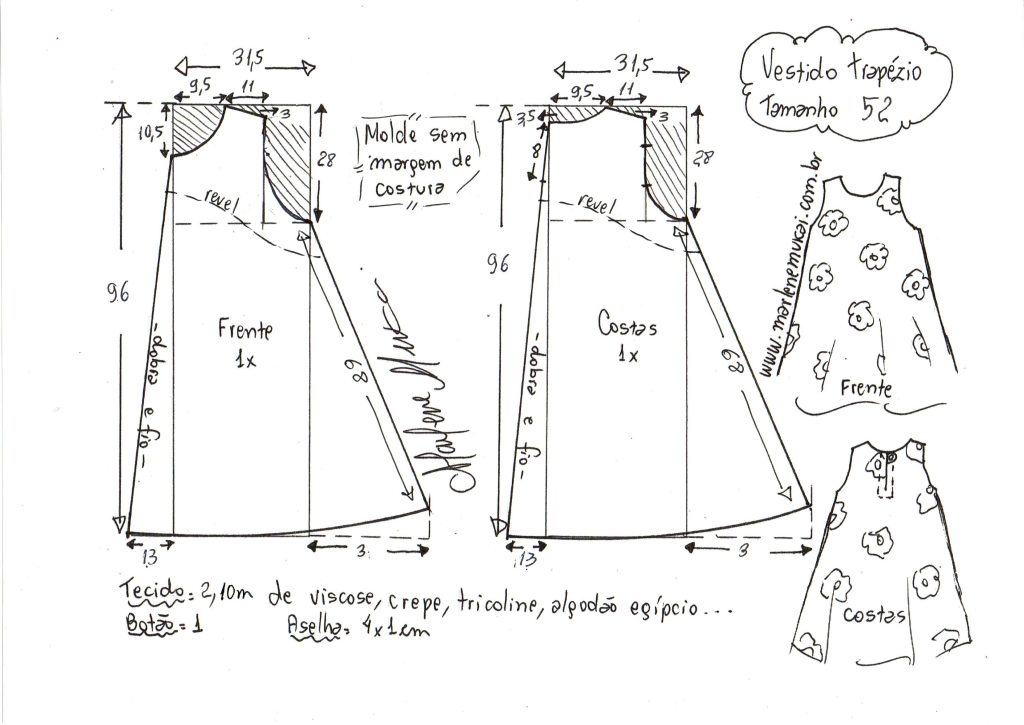 Vestido trapézio
Tamanho 52
31,5
9,5
11
3
10,5
28
96
revel
Frente
1x
-dobra e fio-
68
13
3
Molde sem
margem de
costura
31,5
9,5
11
3
3,5
8
28
96
revel
Costas
1x
-dobra e fio-
68
13
3
www.marlenemukai.com.br
Frente
Costas
Tecido: 2,10m de viscose, crepe, tricoline, algodão egípcio...
Botão = 1
Aselha = 4x1cm